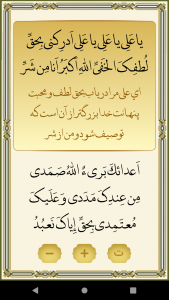 یا عَلی یا عَلی یا عَلی اَدرِکنی بِحَقِّ
لُطفِکَ الخَفیِّ اللهُ اَکبَرُ اَنَا مِن شَرِّ
ای علی مرا دریاب بحق لطف و محبت
پنهانت خدا بزرگتر از آن است که
توصیف شود و من از شر
اَعدائِکَ بَریءٌ اَللهُ صَمَدی
مِن عِندِکَ مَدَدی وَ عَلَیکَ
مُعتَمِدی بِحَقِّ اِیاکَ نَعبُدُ
− + ت